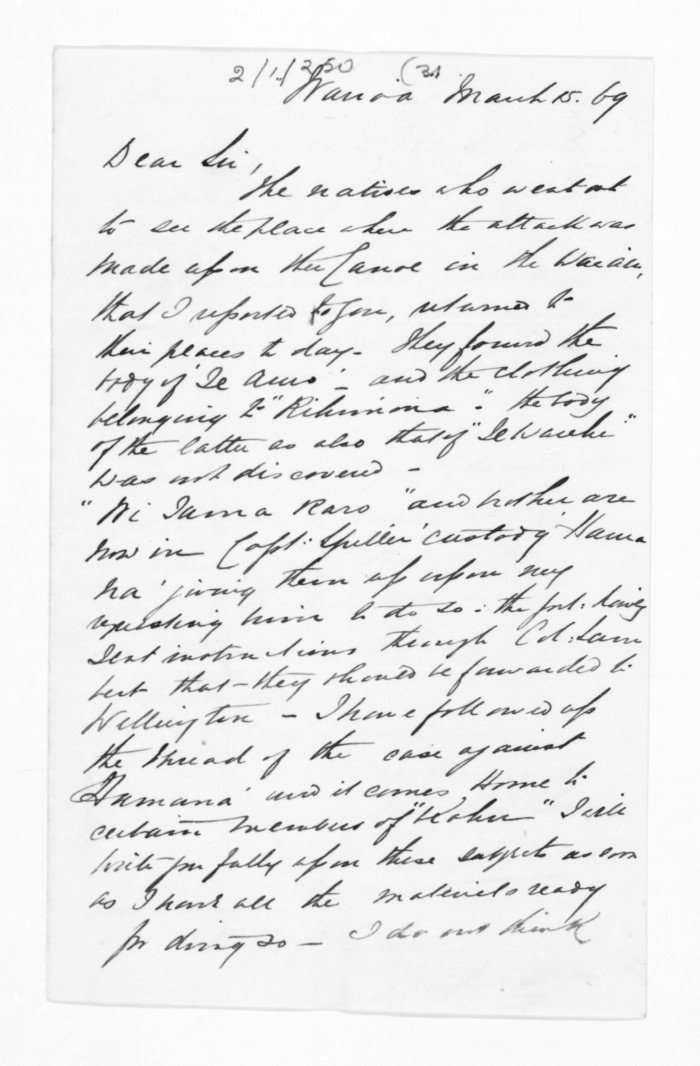 2/1/250 (3)
Wairoa March 15. 69
Dear Sir,
The natives who went out
to see the place where the attack was
made upon the Canoe in the Waiau,
that I reported to you, returned to
their places to day - They found the
body of 'Te Amo' - and the clothing
belonging to "Rihimona". the body
of the latter as also that of "Te Waehi"
was not discovered -
"Wi Tama Karo" and brother are
now in Capt: Spiller' custody 'Hama
na' giving them up upon my
requesting him to do so: the Govt: having
sent instructions through Col: Lam
bert that they should be forwarded to
Wellington - I have followed up
the thread of the case against
Hamana' and it comes Home to
certain members of "Kahu" I will
write you fully upon these subjects as soon
as I have all the materials ready
for doing so - I do not think